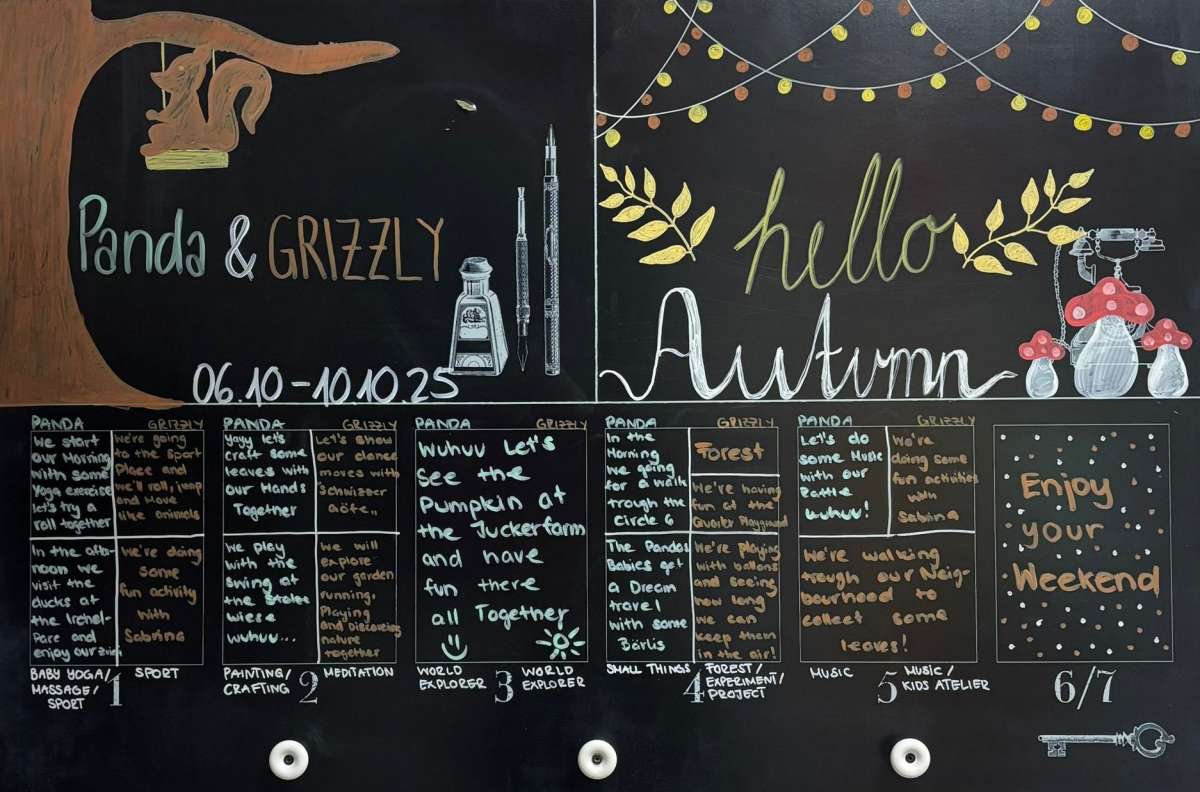 Panda & GRIZZLY
06.10-10.10.25
hello
Autumn
PANDA
We start
our Morning
with some
Yoga exercise
let's try a
roll together
GRIZZLY
We're going
to the Sport
Place and
we'll roll, jump
and Move
like animals
In the after-
noon we
visit the
ducks at
the Irchel-
Parc and
enjoy our
We're doing
some
fun activity
with
Sabrina
BABY YOGA/
MASSAGE/
SPORT
1
SPORT
PANDA
Yayy let's
craft some
leaves with
our Hands
Together
GRIZZLY
Let's show
our dance
moves with
"Schwizzer
Goofe"
We play
with the
swing at
the
wiese
wuhuv...
We will
explore
our garden
running,
Playing
and Discovering
nature
together
PAINTING/
CRAFTING
2
MEDITATION
PANDA
GRIZZLY
Wuhuv Let's
See the
Pumpkin at
the Juckerfarm
and have
fun there
all Together
WORLD
EXPLORER
3
WORLD
EXPLORER
PANDA
In the
Morning
we going
for a walk
trough the
Circle 6
GRIZZLY
Forest
We're having
fun at the
Playground
The Pandas
Babies get
a Dream
travel
with some
Bärlis
We're playing
with ballons
and seeing
how long
we can
keep them
in the air!
SMALL THINGS
4
FOREST/
EXPERIMENT/
PROJECT
PANDA
Let's do
some Music
with our
Rattle
wuhuv!
GRIZZLY
We're
doing some
fun activities
with
Sabrina
We're walking
trough our Neig-
bourhood to
collect some
leaves!
MUSIC
5
MUSIC/
KIDS ATELIER
Enjoy
your
Weekend
6/7